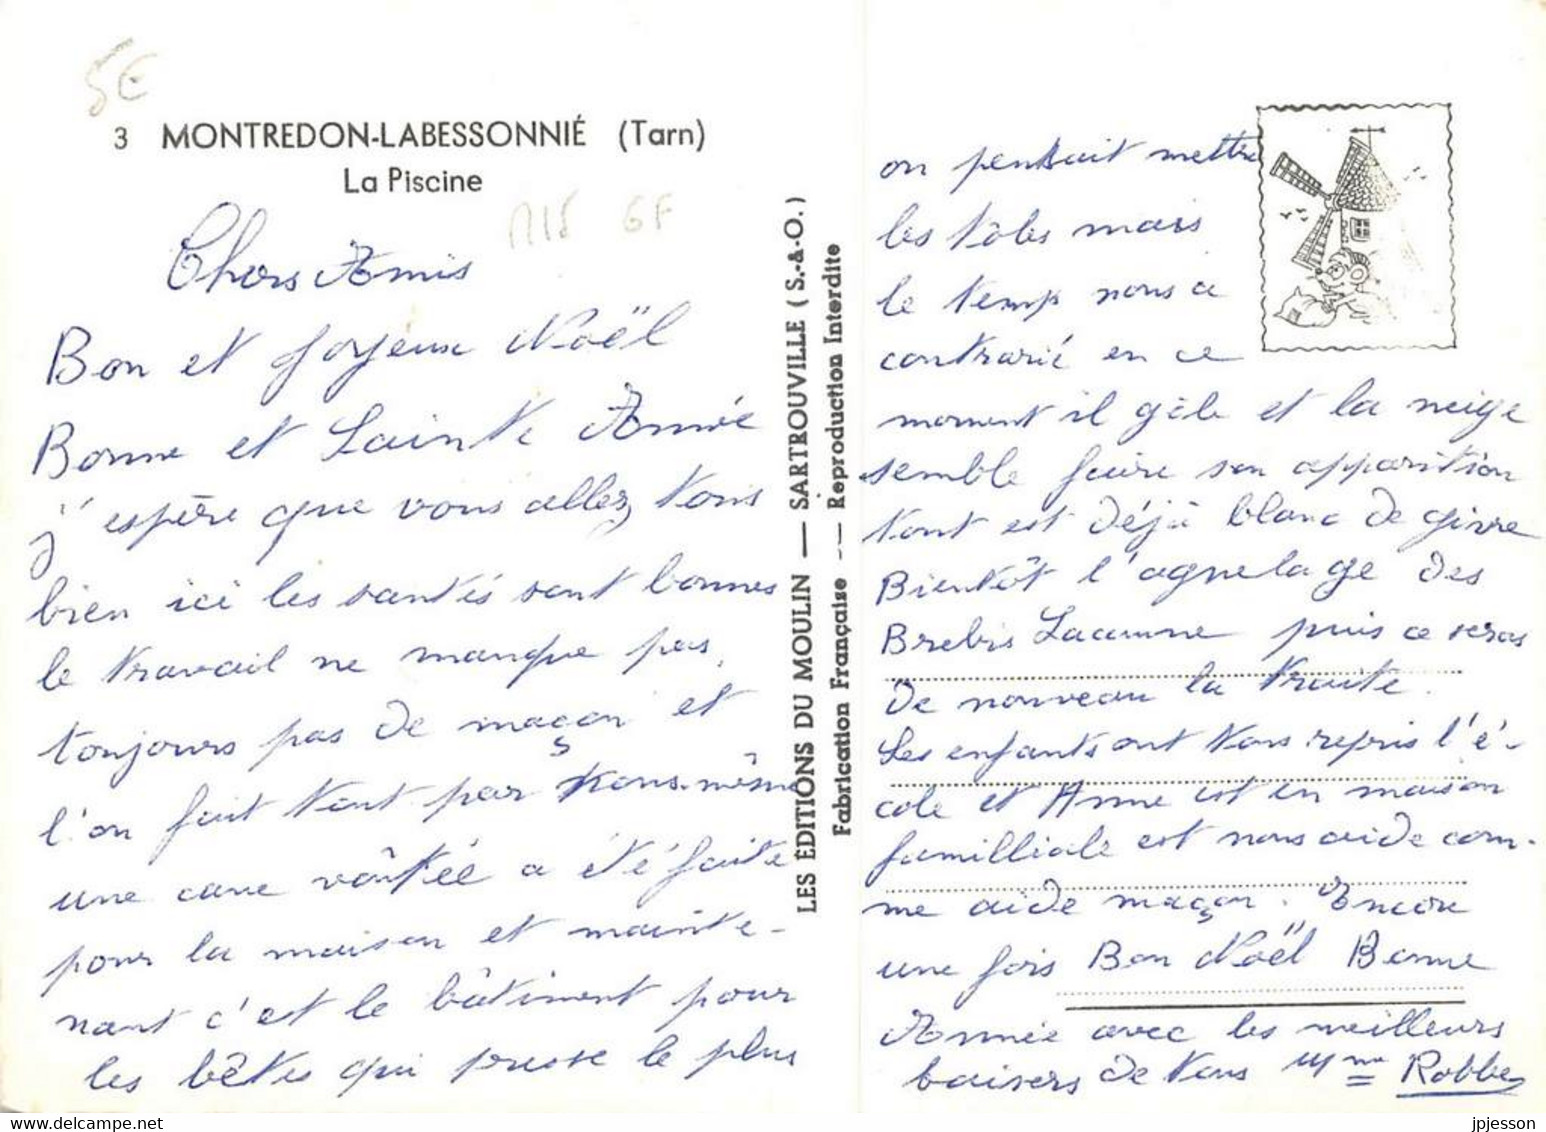 5€
3 MONTREDON-LABESSONNIÉ (Tarn)
La Piscine
6F
Chers Amis
Bon et Joyeux Noël
Bonne et Sainte Année
j'espère que vous allez tous
bien ici les santés sont bonnes
le travail ne manque pas,
toujours pas de maçon et
l'on fait tout par nous-même
une cave voûtée a été faite
pour la maison et mainte-
nant c'est le bâtiment pour
les bêtes qui presse le plus
LES ÉDITIONS DU MOULIN — SARTROUVILLE (S.-&-O.)
Fabrication Française -- — Reproduction Interdite
on pensait mettre
les tôles mais
le temps nous a
contrarié en ce
moment il gèle et la neige
semble faire son apparition
tout est déjà blanc de givre
Bientôt l'agnelage des
Brebis Lacaune puis ce seras
de nouveau la traite.
Les enfants ont tous repris l'é-
cole et Anne est en maison
famillialle est nous aide com-
me aide maçon. Encore
une fois Bon Noël Bonne
Année avec les meilleurs
baisers de tous Mme Robbe
jpjesson